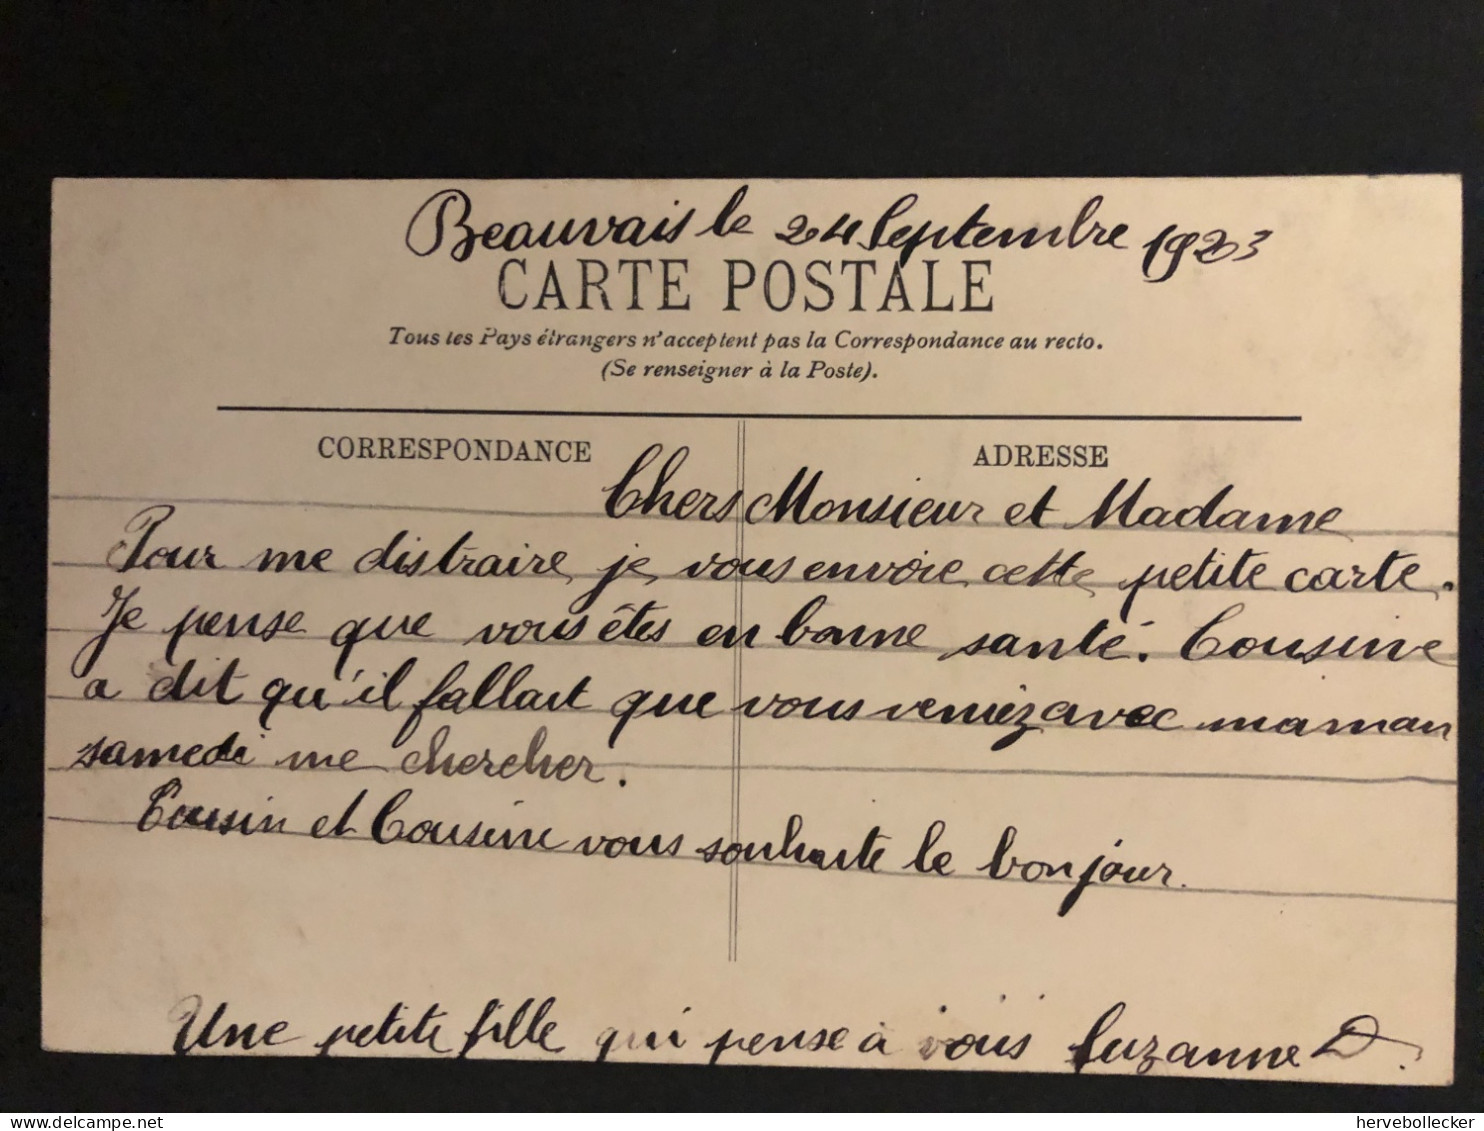 Beauvais le 24 Septembre 1923
CARTE POSTALE
Tous les Pays étrangers n'acceptent pas la Correspondance au recto.
(Se renseigner à la Poste).
CORRESPONDANCE
ADRESSE
Chers Monsieur et Madame
Pour me distraire je vous envoie cette petite carte.
Je pense que vous êtes en bonne santé. Cousine
a dit qu'il fallait que vous veniez avec maman
samedi me chercher.
Cousin et Cousine vous souhaite le bonjour.
Une petite fille qui pense à vous Suzanne D.
hervebollecker